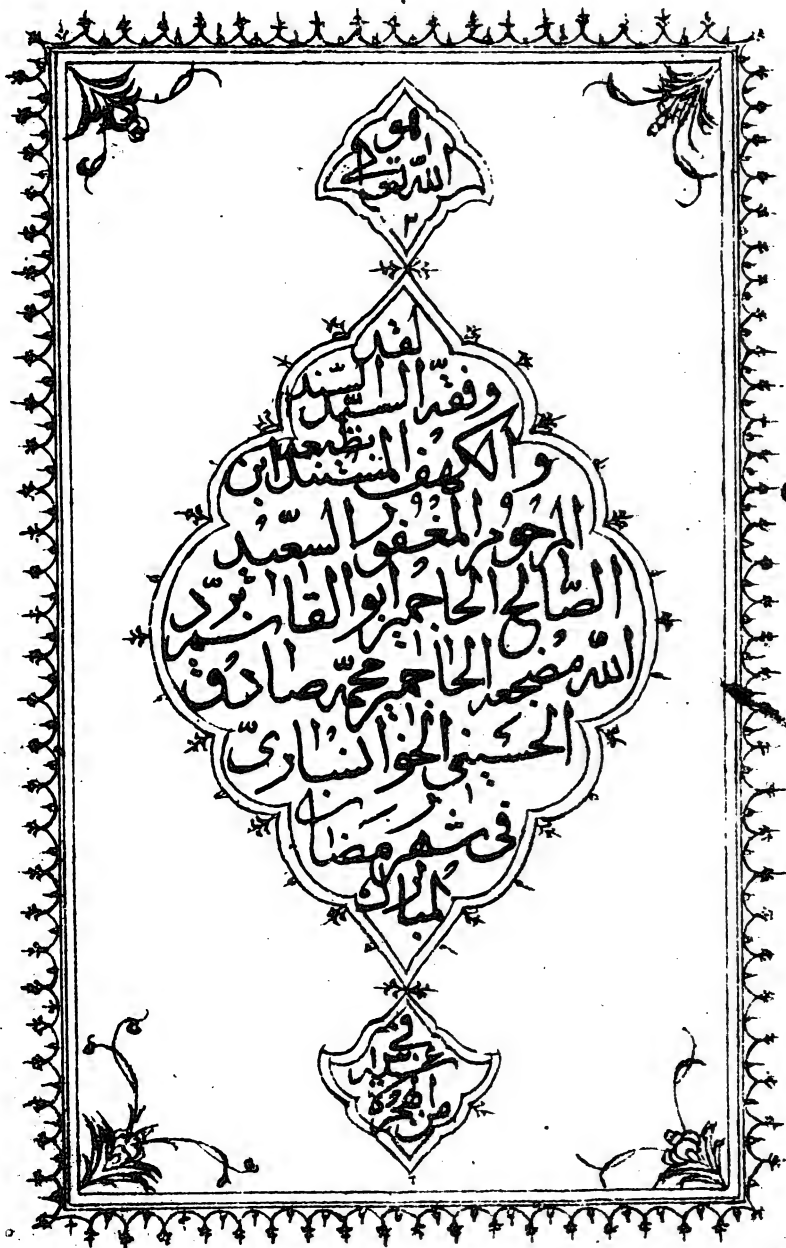 هو
الله تعالى
٢
لقد
وفقه السيّد السند
بطبعه
والكهف المستند ابن
المرحوم المغفور السّعيد
الصّالح الحاجمير ابو القاسم برّد
الله مضجعه الحاجمير محمّد صادق
الحسيني الخوانساريّ
في شهر رمضان
المبارك
من الهجرة